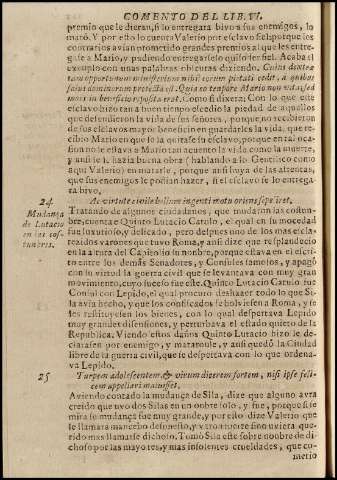 COMENTO DEL LIB. VI.
premio que le dieran, si lo entregara bivo a sus enemigos, lo
mató. Y por esto lo cuenta Valerio por esclavo fiel: porque los
contrarios avian prometido grandes premios al que les entre-
gasse a Mario, y pudiendo entregarselo quiso ser fiel. Acaba el
exemplo con unas palabras obscuras diziendo.
tam opportunum ministerium nisi eorum pietati cedit, a quibus
salus dominorum protecta est. Quia eo tempore Mario non vita, sed
mors in beneficio reposita erat. Como si dixera: Con lo que este
esclavo hizo tan a buen tiempo escedio la piedad de aquellos
que defendieron la vida de sus señores, porque, no recibieron
de sus esclavos mayor beneficio en guardarles la vida, que re-
cibio Mario en que se la quitasse su esclavo, porque en tal oca-
sion no le estava a Mario tan a cuento la vida como la muerte,
y ansi se le hazia buena obra (hablando a lo Gentilico como
aqui Valerio) en matarle, porque ansi huya de las afrentas,
que sus enemigos le podian hazer, si el esclavo se lo entrega-
ra bivo.
24 Ac virtute civile bellum ingenti motu oriens sepeliret.
Mudança de Lutacio en las costumbres.
Tratando de algunos ciudadanos, que mudaron las costum-
bre, cuenta: Quinto Lutacio Catulo, el qual en su mocedad
fue luxurioso, y delicado, pero despues uno de los mas escla-
recidos varones que tuvo Roma, y ansi dize que resplandecio
en la altura del Capitolio su nonbre, porque estava en el escri-
to entre los demas Senadores, y Consules famosos, y apagó
con su virtud la guerra civil que se levantava con muy gran
movimiento, cuyo sucesso fue este. Quinto Lutacio Catulo fue
Consul con Lepido, el qual procuro deshazer todo lo que Si-
la avia hecho, y que los confiscados se bolviessen a Roma, y se
les restituyessen los bienes, con lo qual despertava Lepido
muy grandes disensiones, y perturbava el estado quieto de la
Republica. Viendo estos daños Quinto Lutacio hizo le de-
clarassen por enemigo, y matanle, y ansi quedó la Ciudad
libre de la guerra civil, que se despertava con lo que ordena-
va Lepido.
25 Turpem adolescentem, & virum dicerem fortem, nisi ipse feli-
cem appellari maluisset.
Aviendo contado la mudança de Sila, dize que alguno avra
creido que uvo dos Silas en un nobre solo, y fue, porque si se
mira su mudança fue muy grande, y por esto dize Valerio que
le llamara mancebo desonesto, y varon fuerte sino uviera que-
rido mas llamarse dichoso. Tomó Sila este sobre nombre de di-
choso por las mayores, y mas insolentes crueldades, que co-
metio